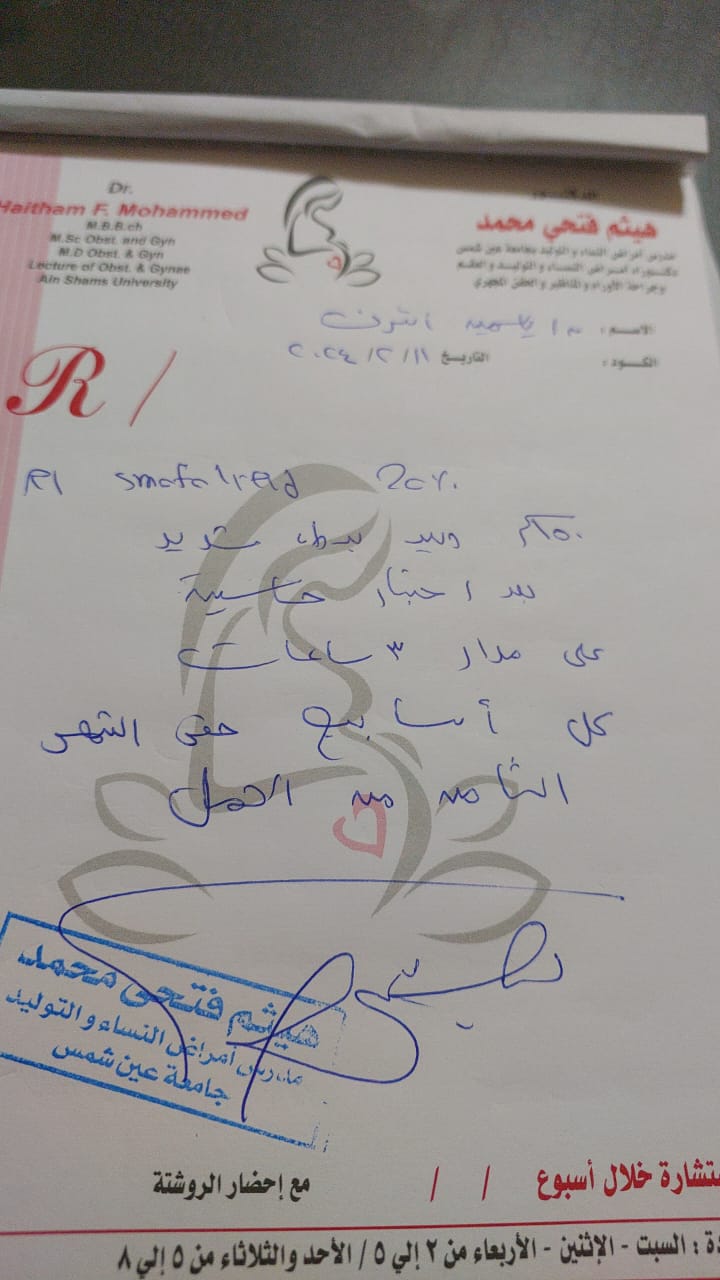 Dr.
Haitham F. Mohammed
M.B.B.ch
M.Sc Obst. and Gyn
M.D Obst. & Gyn
Lecture of Obst. & Gynae
Ain Shams University
هيثم فتحي محمد
مدرس أمراض النساء والتوليد بجامعة عين شمس
دكتوراه أمراض النساء والتوليد والعقم
وجراحة الأورام والمناظير والحقن المجهري
الاسم : ياسمين أشرف
الكود : التاريخ ٢٠٢٤/٢/١١
R /
R/ smofolipid 20%
٢٥٠ وريد ببطء شديد
بعد اختبار حساسية
على مدار ٣ ساعات
كل أسابيع حتى الشهر
الثامن من الحمل
هيثم فتحى محمد
مدرس أمراض النساء والتوليد
جامعة عين شمس
خلال أسبوع / / مع إحضار الروشتة
: السبت - الإثنين - الأربعاء من ٢ إلي ٥ / الأحد والثلاثاء من ٥ إلي ٨